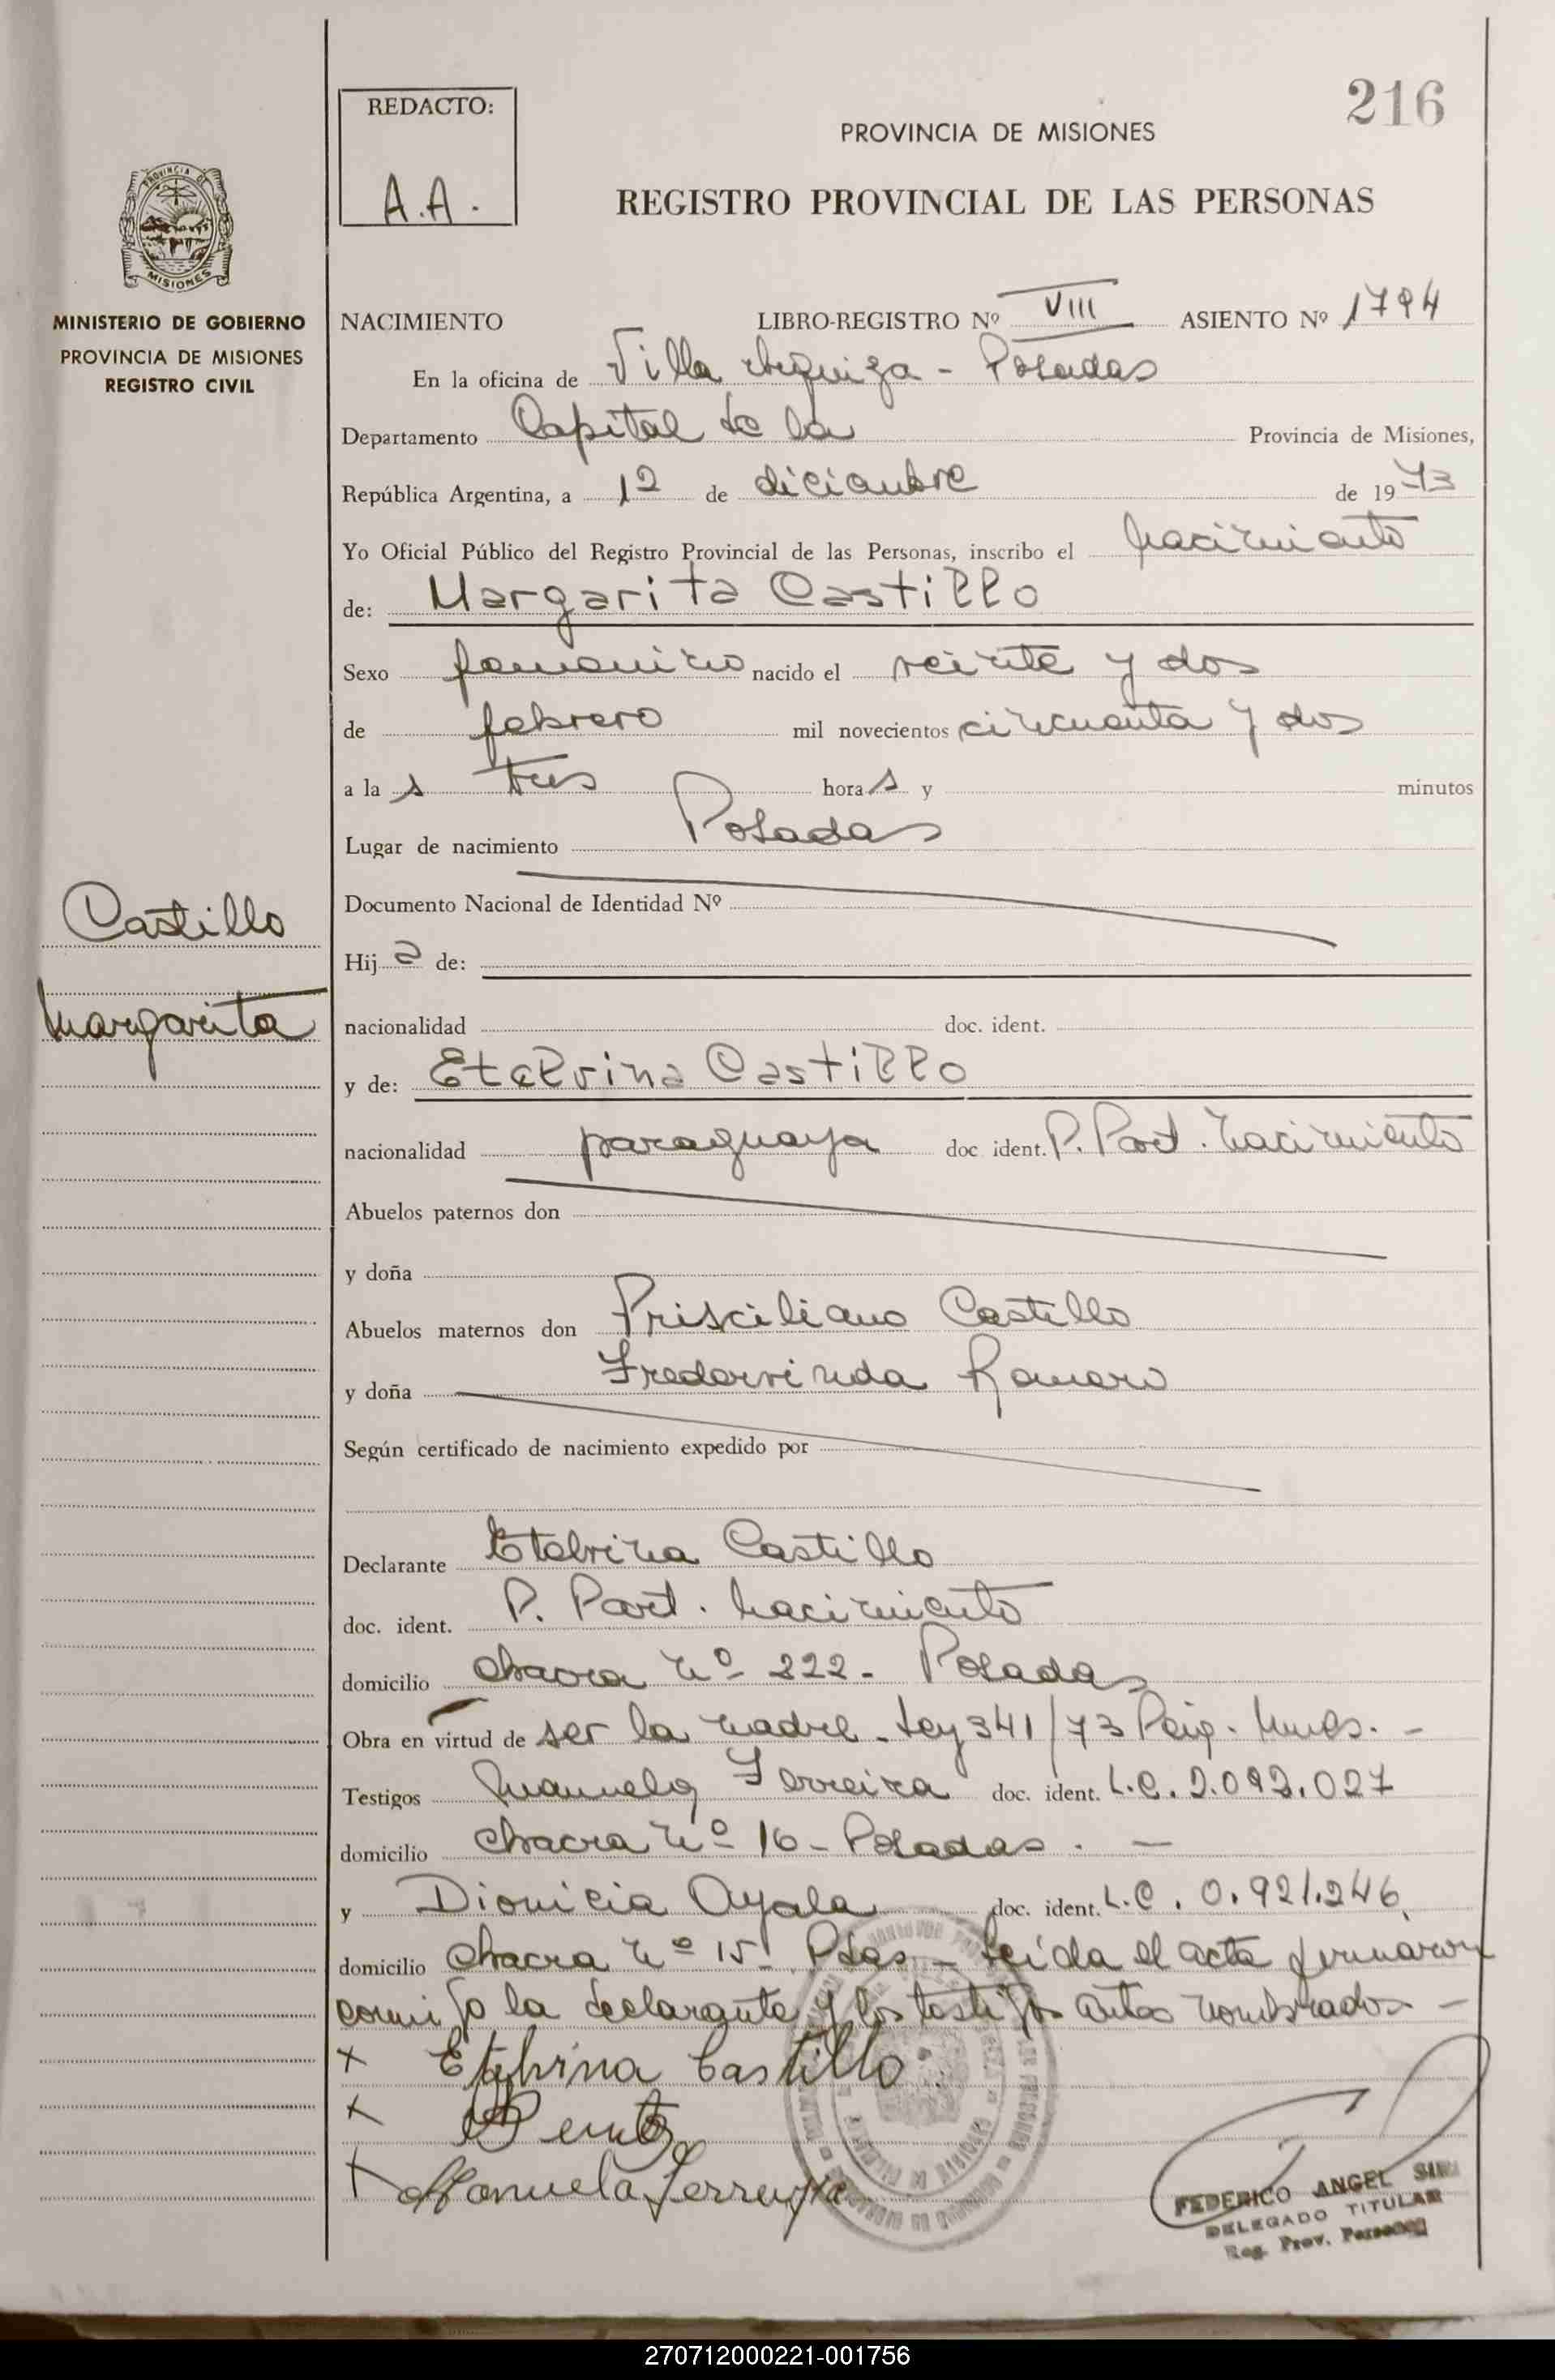 216
REDACTO:
A.A.
PROVINCIA DE MISIONES
REGISTRO PROVINCIAL DE LAS PERSONAS
MISIONES
MINISTERIO DE GOBIERNO
PROVINCIA DE MISIONES
REGISTRO CIVIL
NACIMIENTO LIBRO-REGISTRO Nº VIII ASIENTO Nº 1794
En la oficina de Villa Urquiza - Posadas
Departamento Capital de la Provincia de Misiones,
República Argentina, a 12 de diciembre de 1973
Yo Oficial Público del Registro Provincial de las Personas, inscribo el nacimiento
de: Margarita Castillo
Sexo femenino nacido el veinte y dos
de febrero mil novecientos cincuenta y dos
a las tres horas y minutos
Lugar de nacimiento Posadas
Documento Nacional de Identidad Nº
Castillo
Margarita
Hija de:
nacionalidad doc. ident.
y de: Etelvina Castillo
nacionalidad paraguaya doc ident. P. Part. nacimiento
Abuelos paternos don
y doña
Abuelos maternos don Prisciliano Castillo
y doña Fredorvinda Romero
Según certificado de nacimiento expedido por
Declarante Etelvina Castillo
doc. ident. P. Part. nacimiento
domicilio chacra nº 222- Posadas
Obra en virtud de ser la madre - Ley 341/73 -
Testigos Manuela Ferreira doc. ident. L.C. 2.092.027
domicilio chacra nº 16 - Posadas. -
y Dionicia Ayala doc. ident. L.C. 0.921.246,
domicilio chacra nº 15 Pdas - leída el acta firmaron
conmigo la declarante y los testigos antes nombrados -
x Etelvina Castillo
x
x Manuela Ferreyra
FEDERICO ANGEL
DELEGADO TITULAR
Reg. Prov. Personas
270712000221-001756